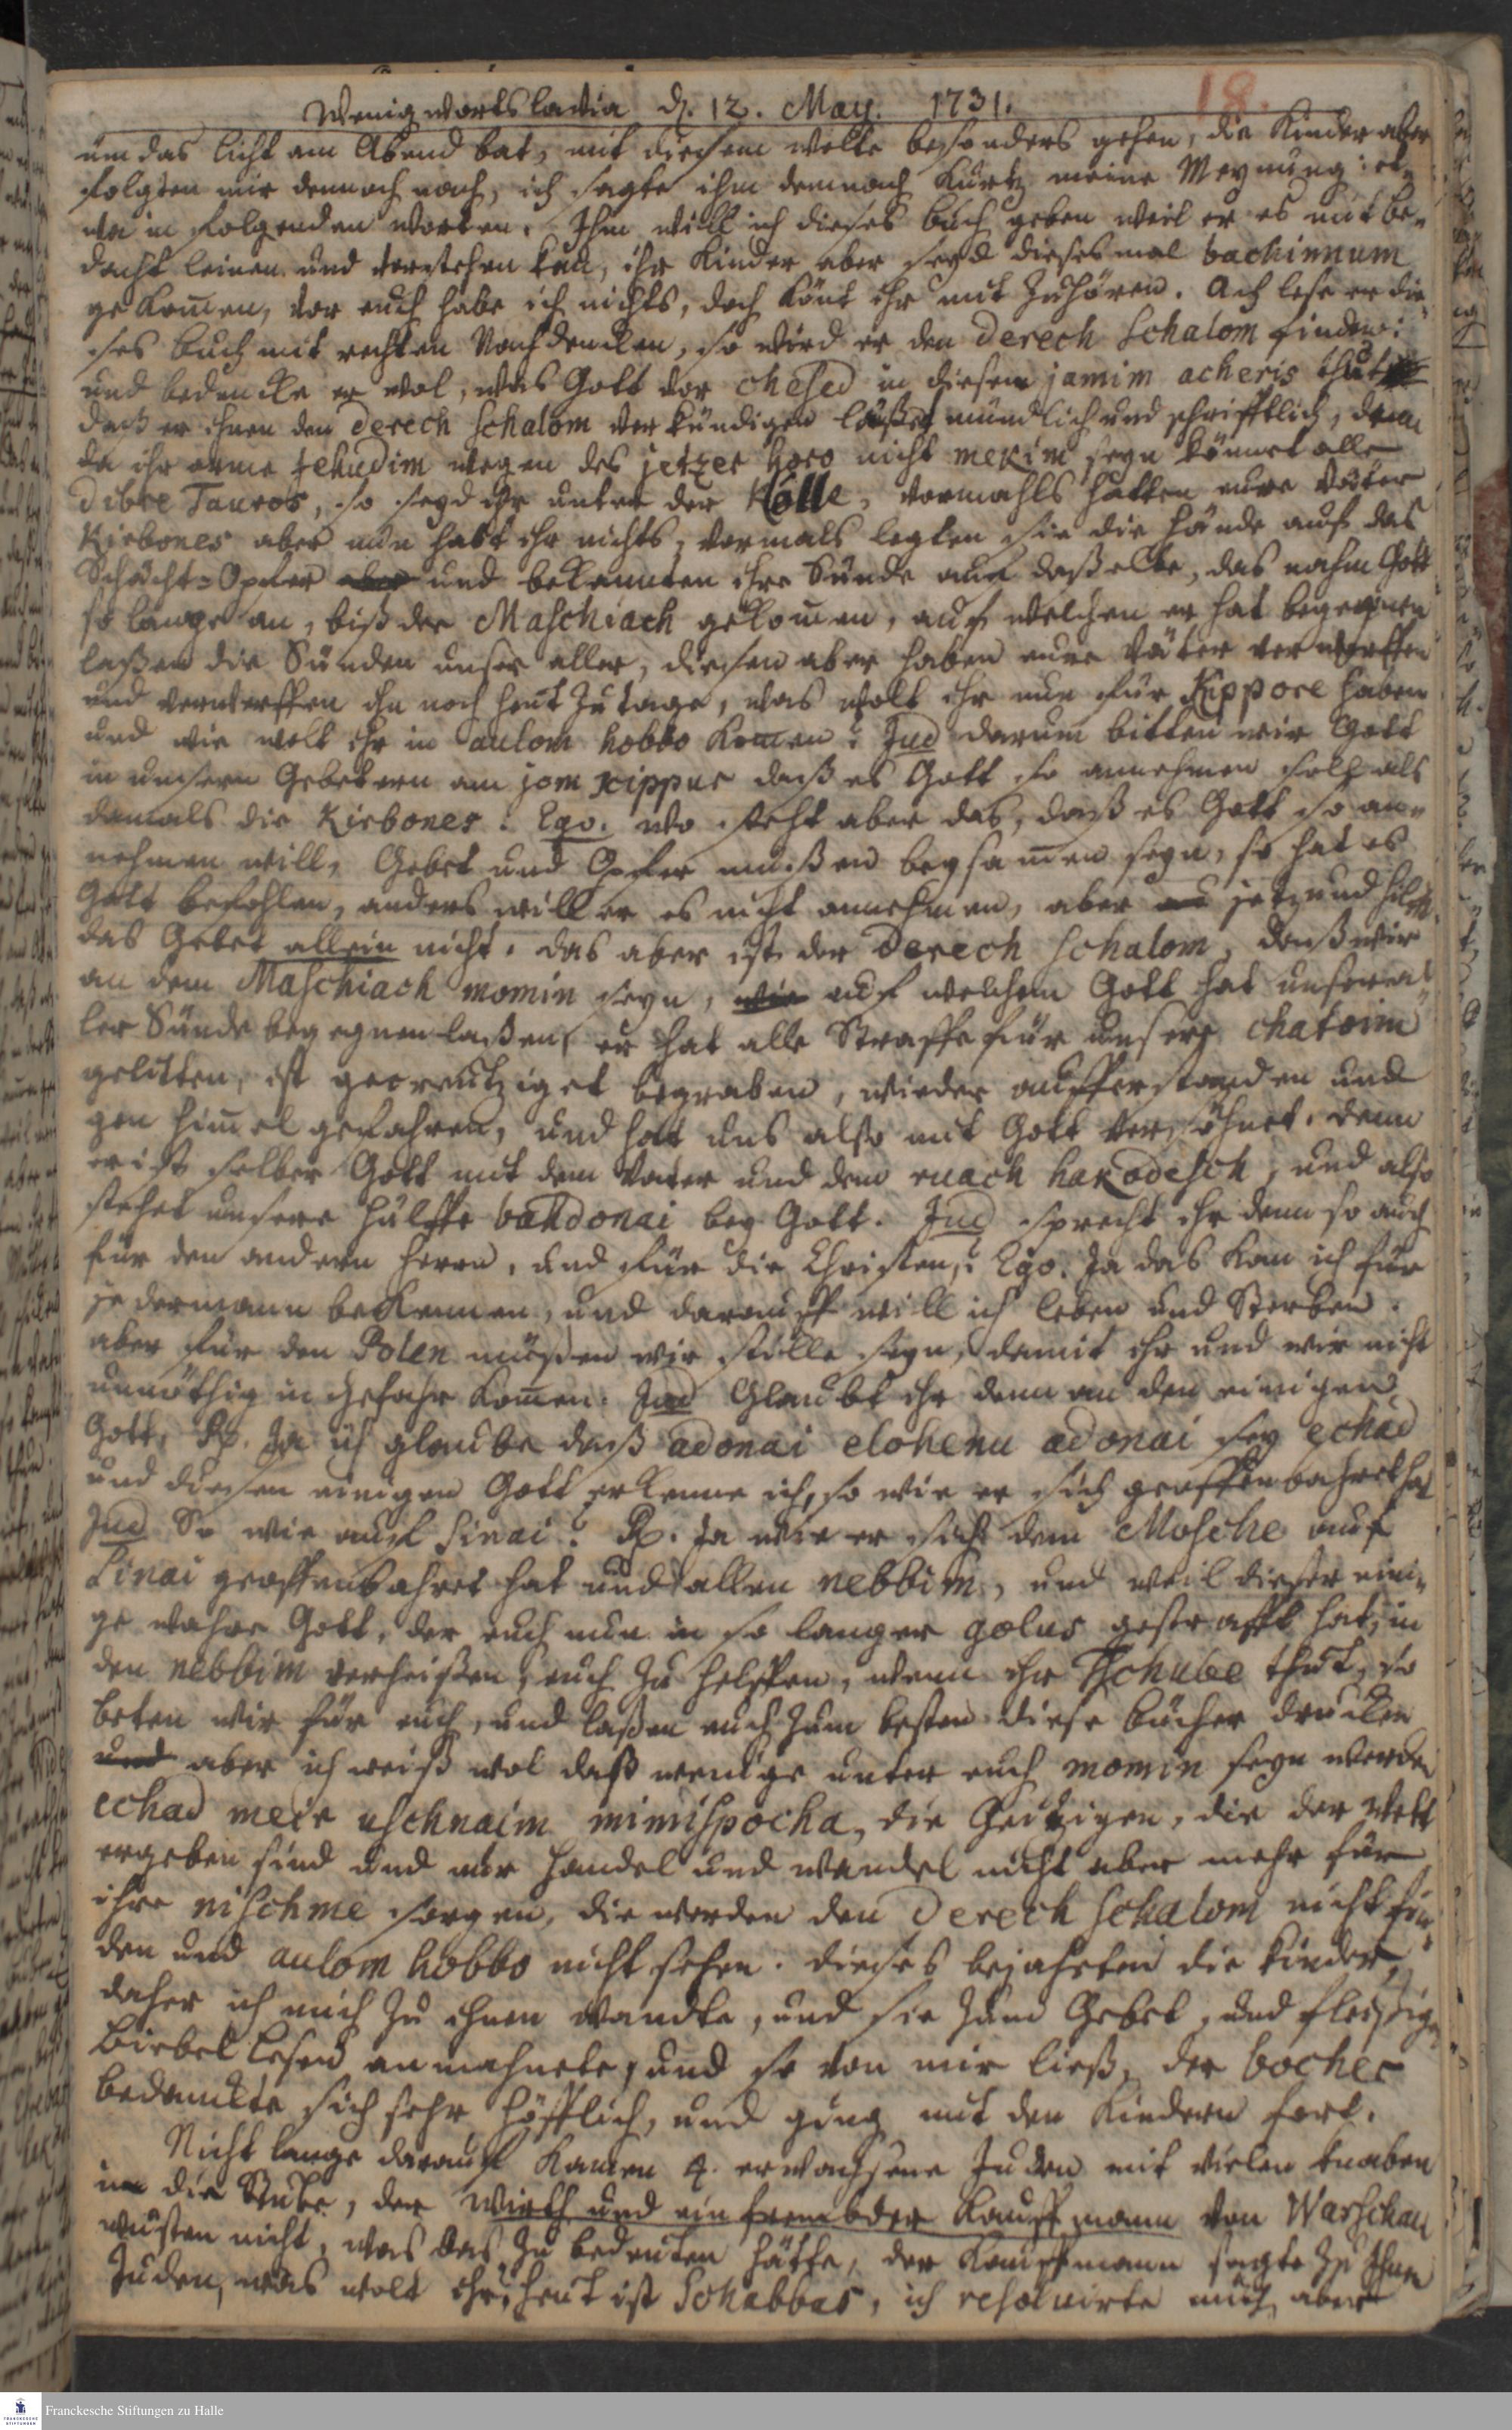 Wenigwortslavia d. 12. May. 1731. 18.
um das licht am Abend bat, mit diesem wolte besonders gehen, die Kinder aber
folgten mir dennoch nach, ich sagte ihm demnach Kurtz meine Meynung: et-
wa in folgenden worten. Ihm will ich dieses buch geben weil er es mit be-
dacht leinen und verstehen kan, ihr Kinder aber seyd dieses mal bachinnum
gekom̄en, vor euch habe ich nichts, doch könt ihr mit Zuhören. Ach lese er die-
ses buch mit rechten Nachdencken, so wird er den Derech Schalom finden:
und bedencke er wol, was Gott vor chesed in diesem jamim acheris thut
daß er ihnen den Derech schalom verkündigen läßet mündlich und schrifftlich, denn
da ihr arme Jehudim wegen des jetzer horo nicht mekim seyn könnet alle
dibre Tauros, so seyd ihr unter der Kölle, vormahls hatten eure Väter
Kirbones aber nun habt ihr nichts, vormals legten sie die hände auf das
Schächt-Opfer aber und bekannten ihre Sünde auf daßelbe, das nahm Gott
so lange an, biß der Maschiach gekom̄en, auf welchen er hat begegnen
laßen die Sünden unser aller, diesen aber haben eure Väter verworffen
und verwerffen ihn noch heut Zu tage, was wolt ihr nun für Kippore haben
und wie wolt ihr in aulom hobbo kom̄en? Jud darum bitten wir Gott
in unsern Gebetern am jom kippur daß es Gott so annehmen soll als
damals die Kirbones. Ego. wo steht aber das, daß es Gott so an-
nehmen will, Gebet und Opfer mußen beysam̄en seyn, so hat es
Gott befohlen, anders will er es nicht annehmen, aber jetzund hilfft
das Gebet allein nicht. das aber ist der Derech schalom, daß wir
an dem Maschiach momin seyn, wie auf welchem Gott hat unserer al-
ler Sünde begegnen laßen, er hat alle Straffe für unsere chatoim
gelitten, ist gecreutziget begraben, wieder aufferstanden und
gen him̄el gefahren, und hat uns also mit Gott versöhnet. denn
er ist selber Gott mit dem Vater und dem ruach hakodesch, und also
stehet unsere hülffe bahdonai bey Gott. Jud sprecht ihr denn so auch
für den andern herrn, und für die Christen? Ego. Ja das kan ich für
jedermann bekennen, und darauff will ich leben und Sterben.
aber für den Polen müßen wir stille seyn, damit ihr und wir nicht
unnöthig in Gefahr kom̄en. Jud Glaubt ihr denn an den einigen
Gott, R. Ja ich glaube daß adonai elohenu adonai sey echad
und diesen einigen Gott erkenne ich, so wie er sich geoffenbahret hat
Jud So wie auf Sinai? R. Ja wie er sich dem Mosche auf
Sinai geoffenbahret hat und allen nebbim, und weil dieser eini-
ge wahre Gott, der euch nun in so langer golus gestrafft hat, in
den nebbim verheißen, euch zu helffen, wenn ihr Tschube thut, so
beten wir für euch, und laßen euch zum besten diese bücher drucken
und aber ich weiß wol daß wenige unter euch momin seyn werden
echad meir uschnaim mimispocha, die Geitzigen, die der Welt
ergeben sind und nur handel und wandel nicht aber mehr für
ihre nischme sorgen, die werden den Derech schalom nicht fin-
den und aulom hobbo nicht sehen. dieses bejahrten die kinder,
daher ich mich zu ihnen wandte, und sie zum Gebet, und fleißigen
Biebel Lesen anmahnete, und so von mir ließ, der bocher
bedanckte sich sehr höfflich, und ging mit den Kindern fort.
Nicht lange darauf kamen 4. erwachsene Juden mit vielen knaben
in die Stube, der Wirth und ein frembder Kauffmann von Warschau
wusten nicht, was das zu bedeuten hätte, der Kauffmann sagte zu Ihnen
Juden, was wolt ihr, heut ist Schabbas, ich resolvirte mich aber
Franckesche Stiftungen zu Halle